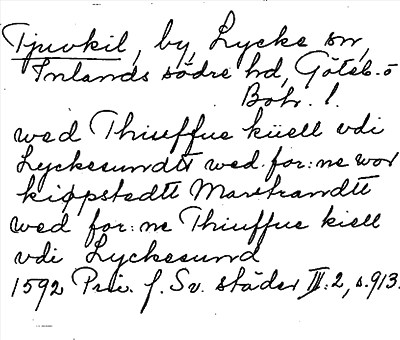 Tjuvkil, by, Lycke sn,
Inlands södre hd, Göteb. o
Boh. l.
wed Thiuffue kiiell vdi
Lyckesundtt wed. for: ne wor
kiøpstedtt Marstrandtt
wed for: ne Thiuffue kiell
vdi Lyckesund
1592 Priv. f. Sv. städer III: 2, s. 913.